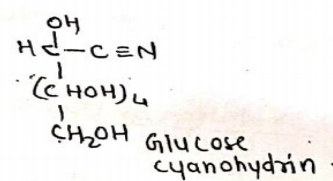 OH
HC-C≡N
(CHOH)4
CH2OH Glucose
cyanohydrin